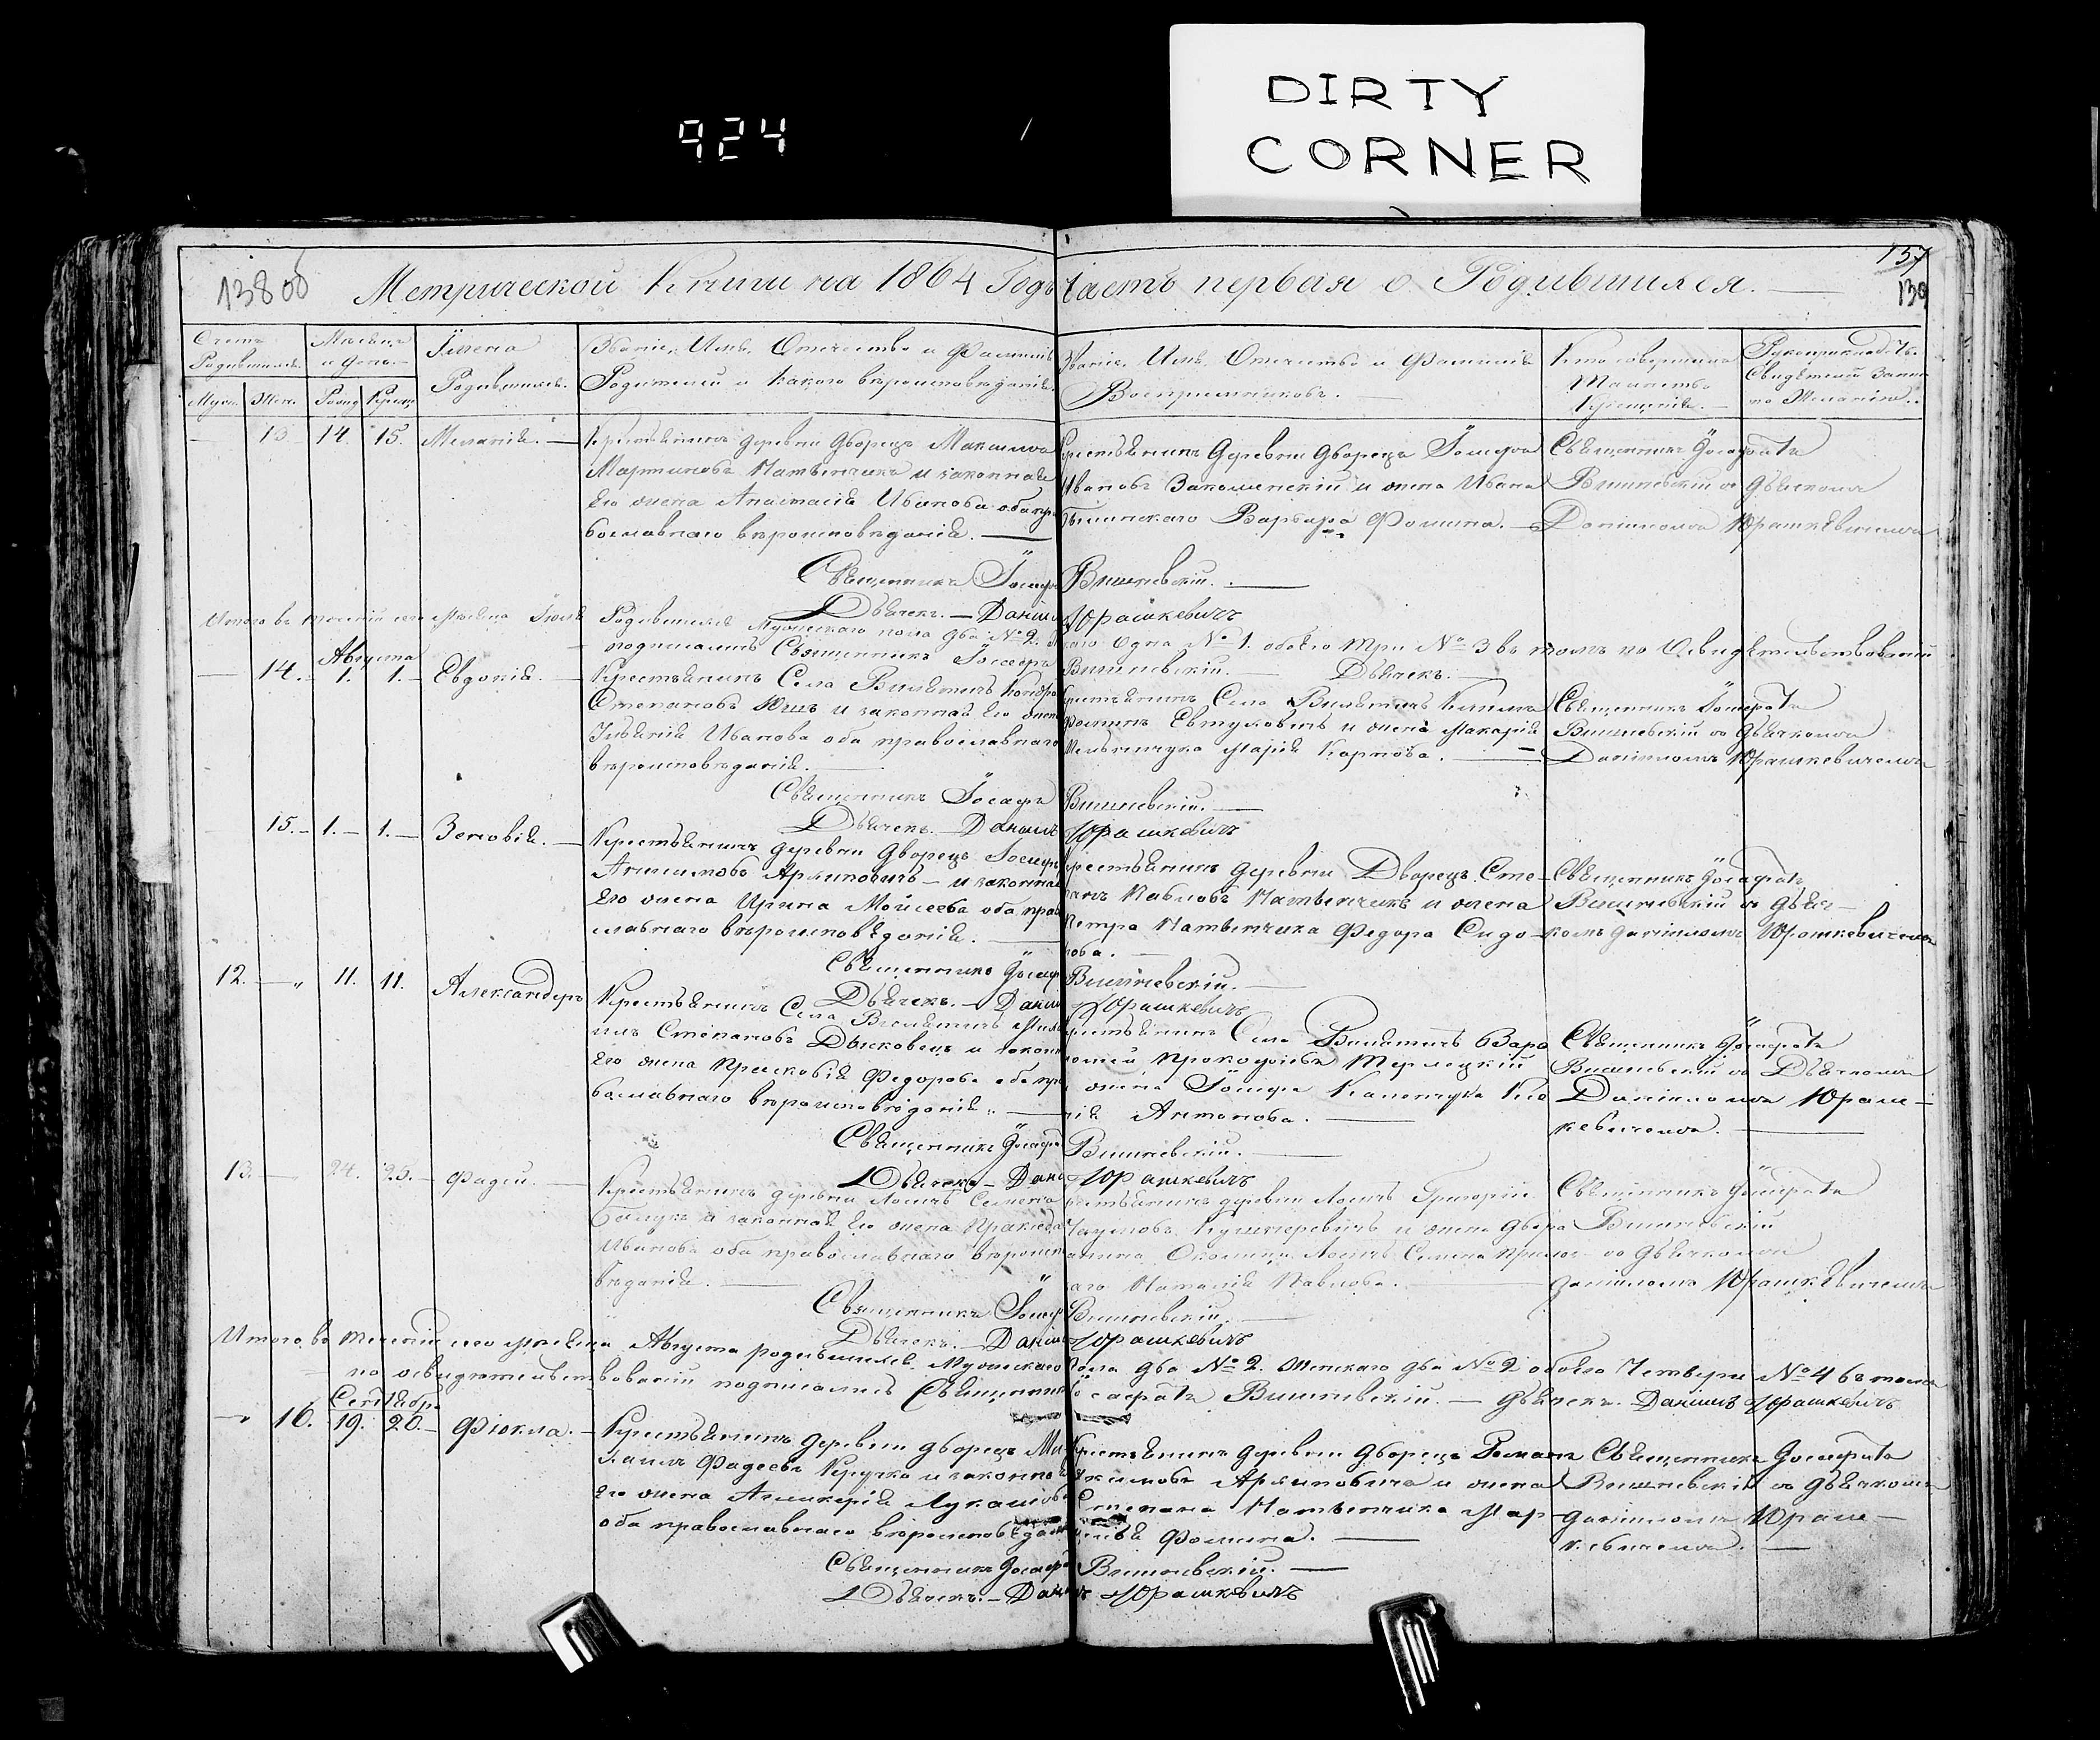 DIRTY
CORNER
924
157
138об
Метрической Книги на 1864 Годъ Часть первая о Родившихся.
139
Счетъ Родившихся.
Мѣсяцъ и день.
Имена Родившихся.
Званіе, Имя, Отчество и Фамилія
Родителей и какого вѣроисповѣданія.
Званіе, Имя, Отчество и Фамилія
Воспріемниковъ.
Кто совершалъ
Таинство
Крещенія.
Рукоприкладство
Свидѣтелей записи
по желанію.
Муж. Жен. Рожд. Крещ.
13 14. 15. Меланія.
Крестьянинъ деревни Дворецъ Максимъ
Мартиновъ Матвѣйчикъ и законная
Его жена Анастасія Иванова оба пра
вославнаго вѣроисповѣданія.
Крестьянинъ деревни Дворецъ Іосифъ
Ивановъ и жена Ивана
Варвара Фомина.
Священникъ Іосафатъ
Вишневскій съ дьячкомъ
Даніиломъ Юрашкевичемъ
Священникъ Іосафатъ Вишневскій.
Дьячекъ. Даніилъ Юрашкевичъ
Итого въ теченіи сего мѣсяца Іюля Родившихся Мужескаго пола два №2. Одна №1. обоего три №3 въ томъ по Освидѣтельствованіи
подписались Священникъ Іосафатъ Вишневскій. Дьячекъ.
Августа
14. 1. 1. Евдокія.
Крестьянинъ Села
Степановъ и законная Его жена
Иванова оба православнаго
вѣроисповѣданія.
Крестьянинъ Села
Фоминъ Евтуховичъ и жена Макарія
Мельничука Марія Карпова.
Священникъ Іосафатъ
Вишневскій съ дьячкомъ
Даніиломъ Юрашкевичемъ
Священникъ Іосафатъ Вишневскій.
Дьячекъ. Даніилъ Юрашкевичъ
15. 1. 1. Зеновія.
Крестьянинъ деревни Дворецъ Іосифъ
Архиповичъ и законная
Его жена Ирина Мойсеева оба право
славнаго вѣроисповѣданія.
Крестьянинъ деревни Дворецъ Сте-
панъ Павловъ Матвѣйчикъ и жена
Петра Матвѣйчика Федора Сидо-
рова.
Священникъ Іосафатъ
Вишневскій съ дьяч-
комъ Даніиломъ Юрашкевичемъ
Священникъ Іосафатъ Вишневскій.
Дьячекъ. Даніилъ Юрашкевичъ
12. 11. 11. Александеръ
Крестьянинъ Села Миха
илъ Степановъ Дысковецъ и законная
Его жена Прасковія Федорова оба пра
вославнаго вѣроисповѣданія.
Крестьянинъ Села Варо
ломей Прокофіевъ Терлецкій
и жена Іосифа
Антонова.
Священникъ Іосафатъ
Вишневскій съ Дьячкомъ
Даніиломъ Юраш-
кевичемъ.
Священникъ Іосафатъ Вишневскій.
Дьячекъ. Даніилъ Юрашкевичъ
13. 24. 25. Фадей.
Крестьянинъ деревни Семенъ
и законная Его жена
Иванова оба православнаго вѣроиспо
вѣданія.
Крестьянинъ деревни Григорій
Наумовъ Кушнеревичъ и жена двора
Семена
Наталія Павлова.
Священникъ Іосафатъ
Вишневскій
съ дьячкомъ
Даніиломъ Юрашкевичемъ
Священникъ Іосафатъ Вишневскій.
Дьячекъ. Даніилъ Юрашкевичъ
Итого въ теченіи сего мѣсяца Августа родившихся Мужескаго пола два №2. Женскаго два №2 обоего Четверо №4 въ томъ
по освидѣтельствованіи подписались Священникъ Іосафатъ Вишневскій. Дьячекъ. Даніилъ Юрашкевичъ
Сентябр.
16. 19. 20. Фіокла.
Крестьянинъ деревни Дворецъ Ми-
хаилъ Фадеевъ Кручко и законная
Его жена Гликерія Лукашова
оба православнаго вѣроисповѣданія
Крестьянинъ деревни Дворецъ Романъ
Архиповичъ и жена
Степана Матвѣйчика Мар-
Фомина.
Священникъ Іосафатъ
Вишневскій съ дьячкомъ
Даніиломъ Юраш-
кевичемъ.
Священникъ Іосафатъ Вишневскій.
Дьячекъ. Даніилъ Юрашкевичъ